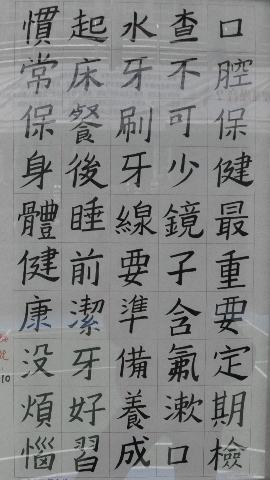 口腔保健最重要定期檢
查不可少鏡子含氟漱口
水牙刷牙線要準備養成
起床餐後睡前潔牙好習
慣常保身體健康沒煩惱
10